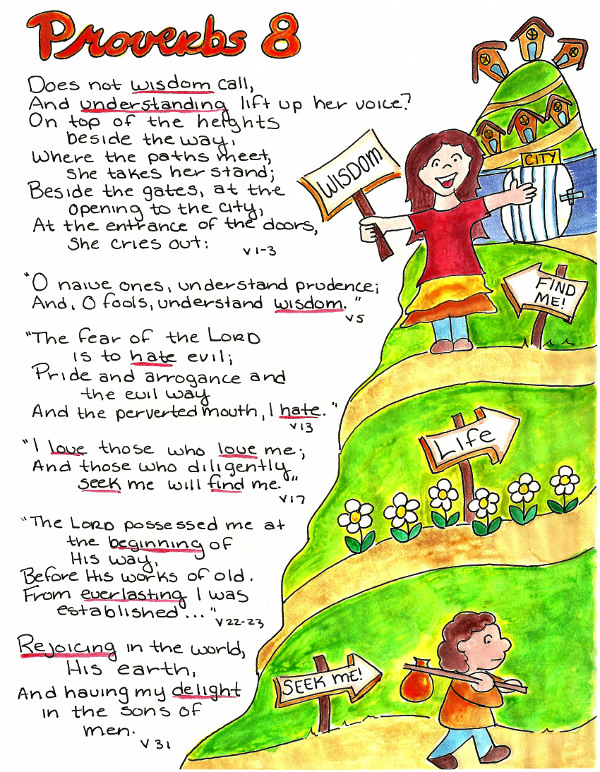 Proverbs 8
Does not wisdom call,
And understanding lift up her voice?
On top of the heights
beside the way,
Where the paths meet,
she takes her stand;
Beside the gates, at the
opening to the city,
At the entrance of the doors,
She cries out:
v1-3
"O naive ones, understand prudence;
And, O fools, understand wisdom."
v5
"The fear of the LORD
is to hate evil;
Pride and arrogance and
the evil way
And the perverted mouth, I hate."
v13
"I love those who love me;
And those who diligently
seek me will find me."
v17
"The LORD possessed me at
the beginning of
His way,
Before His works of old.
From everlasting I was
established..."
v22-23
Rejoicing in the world,
His earth,
And having my delight
in the sons of
men.
v31
WISDOM
CITY
FIND
ME!
Life
SEEK ME!